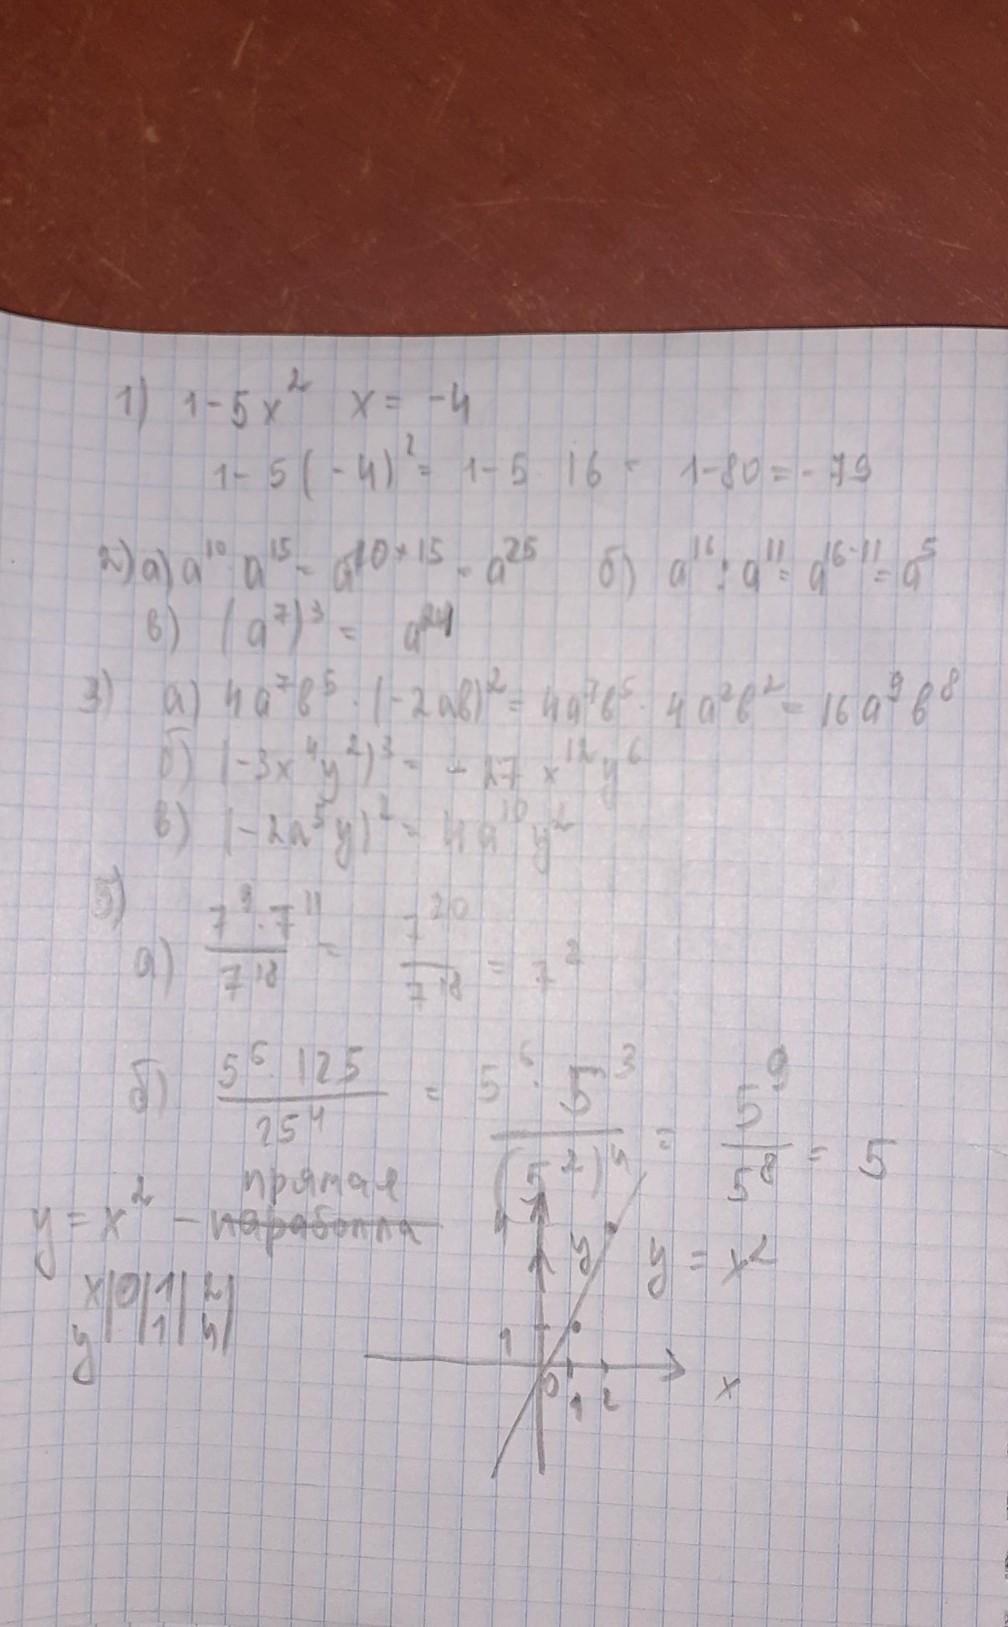 1) 1-5x² x = -4
1-5(-4)² = 1-5 16 - 1-80 = -79
2) а) a¹⁰ a¹⁵ - a¹⁰⁺¹⁵ - a²⁵ б) a¹⁶ : a¹¹ = a¹⁶⁻¹¹ = a⁵
в) (a⁷)³ =
3) а) 4a⁷b⁵ · (-2ab)² = 4a⁷b⁵ · 4a²b² = 16a⁹b⁸
б) (-3x⁴y²)³ = -27x¹²y⁶
в) (-2a⁵y)² = 4a¹⁰y²
5)
а) 7⁹·7¹¹/7¹⁸ = 7²⁰/7¹⁸ = 7²
б) 5⁶·125/25⁴ = 5⁶·5³/(5²)⁴ = 5⁹/5⁸ = 5
прямая
y = x² - параболла
x|0|1|2|
y| |1|4|
4 y y = x²
1
0 1 2 x